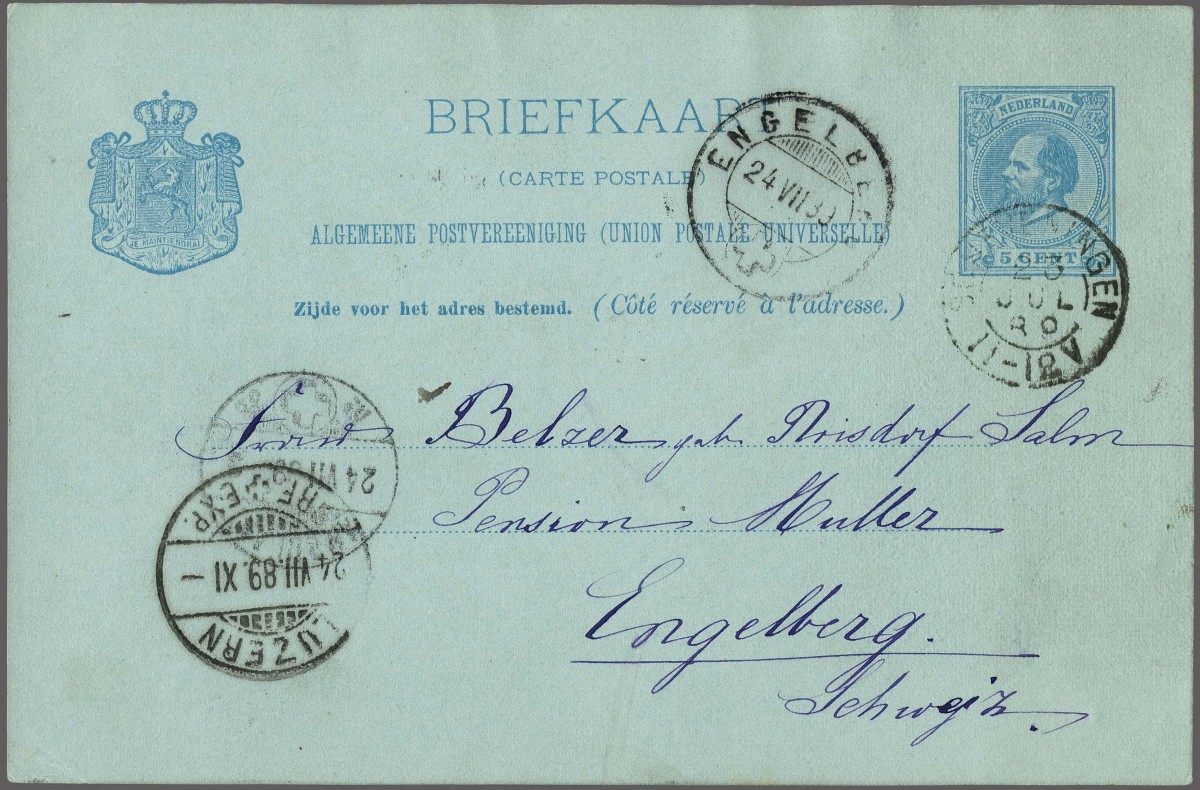 BRIEFKAART
(CARTE POSTALE)
ALGEMEENE POSTVEREENIGING (UNION POSTALE UNIVERSELLE)
Zijde voor het adres bestemd. (Côté réservé à l'adresse.)
JE MAINTIENDRAI
NEDERLAND
5 CENT
ENGELBE
24 VII 89
23
JUL
89
11-12V
Frau Belzer geb. Noisdorf Salm
Pension Muller
Engelberg.
Schweiz
24 VII 89
EXP.
24 VII.89.XI –
LUZERN